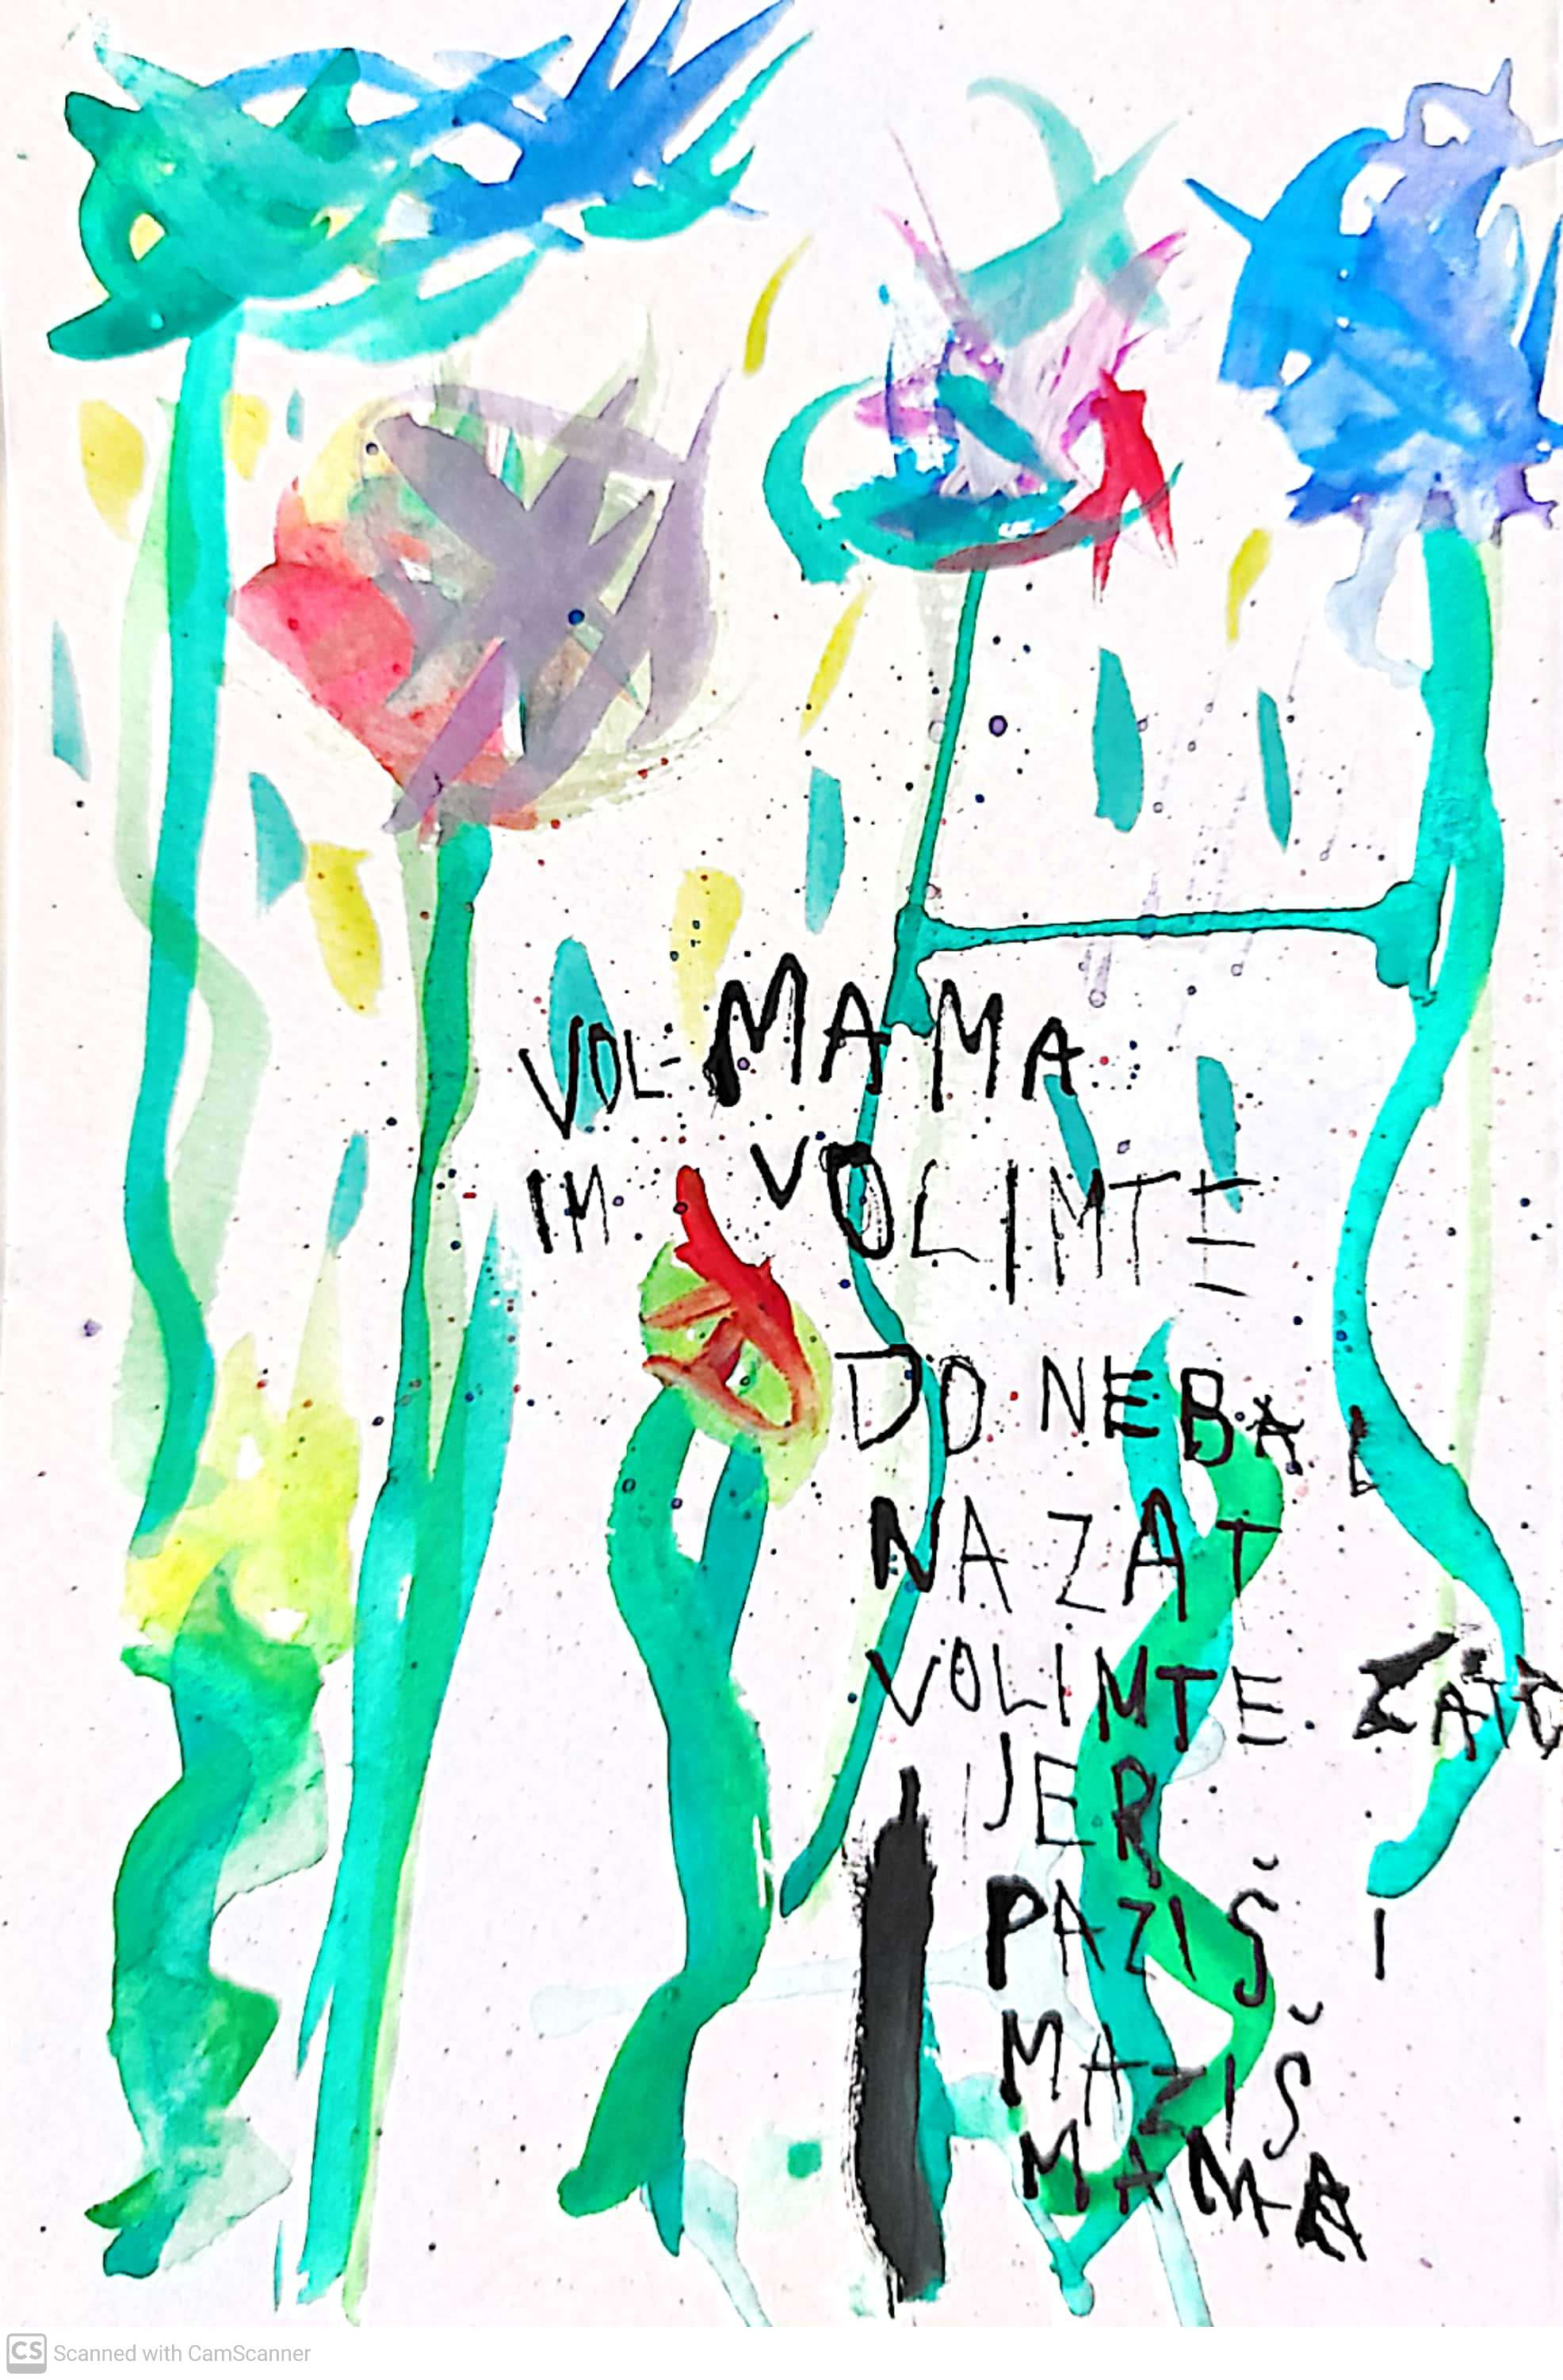 VOL- MAMA
IM VOLIMTE
DO NEBA I
NAZAT
VOLIMTE. ZATO
JER
PAZIŠ I
MAZIŠ
MAMA
CS Scanned with CamScanner